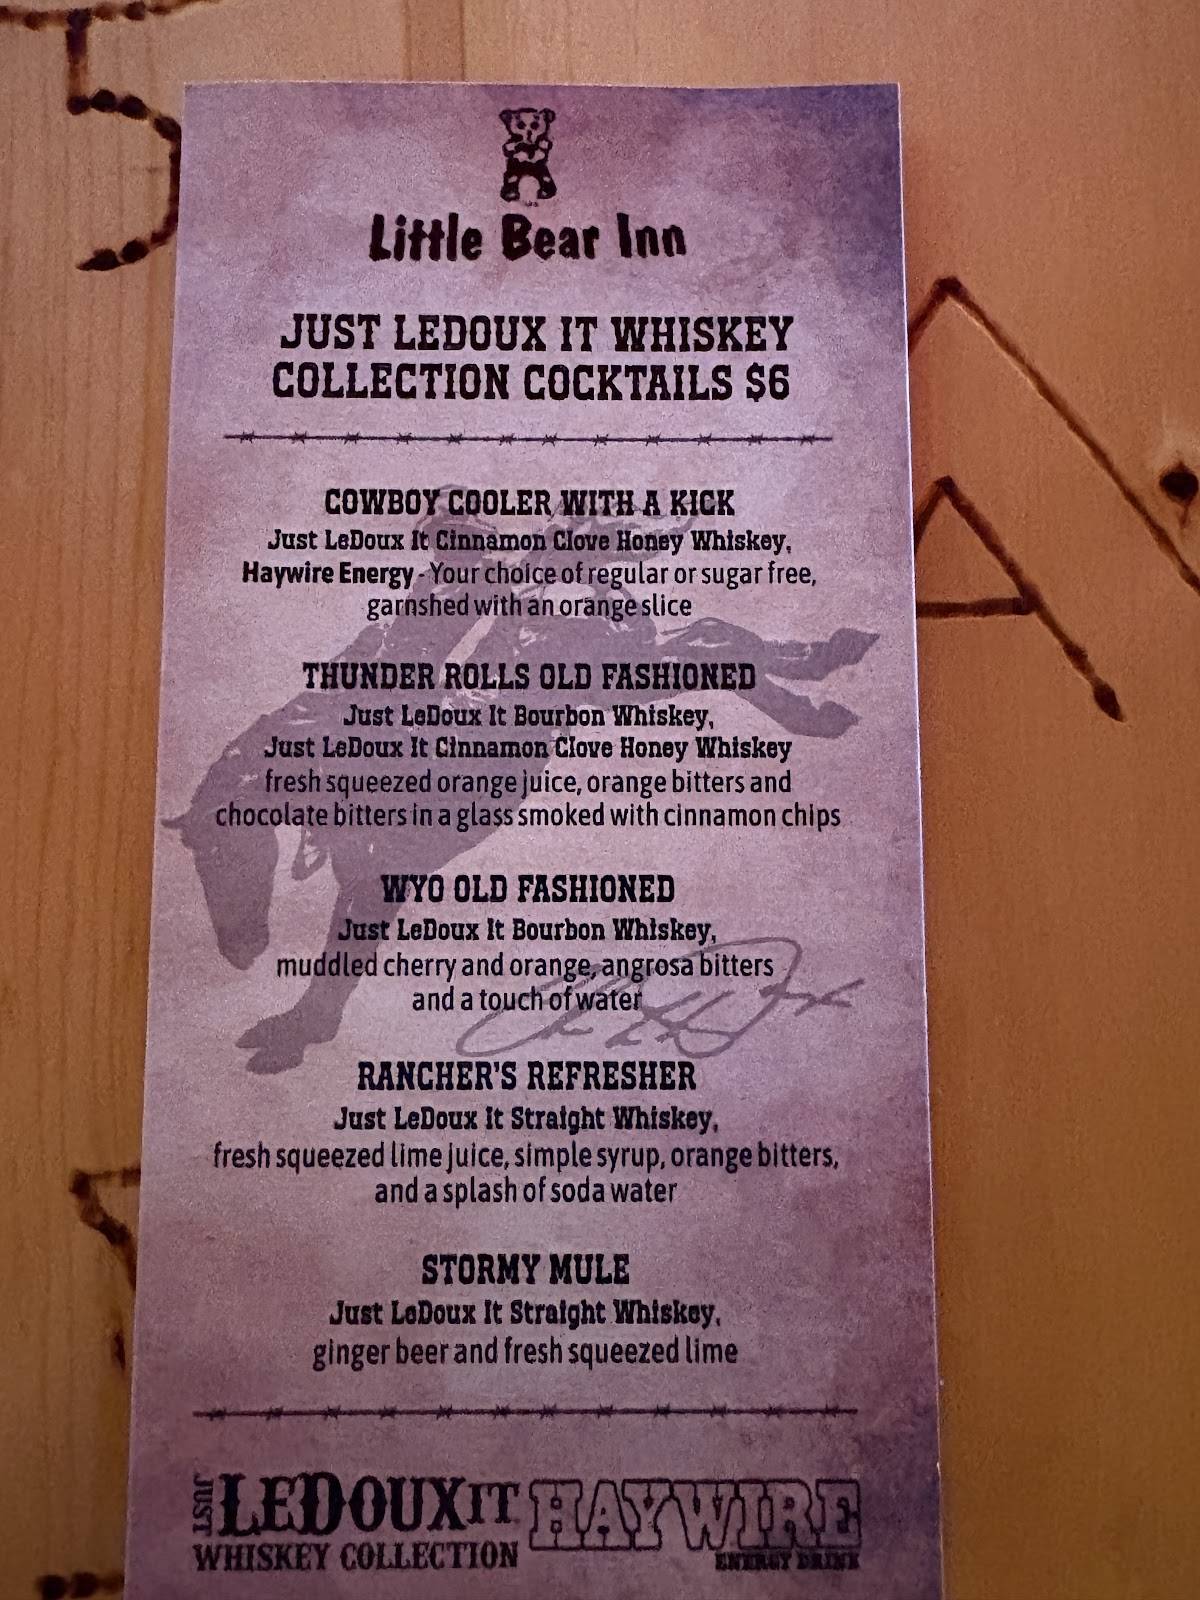 Little Bear Inn
JUST LEDOUX IT WHISKEY
COLLECTION COCKTAILS $6
COWBOY COOLER WITH A KICK
Just LeDoux It Cinnamon Clove Honey Whiskey,
Haywire Energy - Your choice of regular or sugar free,
garnshed with an orange slice
THUNDER ROLLS OLD FASHIONED
Just LeDoux It Bourbon Whiskey,
Just LeDoux It Cinnamon Clove Honey Whiskey
fresh squeezed orange juice, orange bitters and
chocolate bitters in a glass smoked with cinnamon chips
WYO OLD FASHIONED
Just LeDoux It Bourbon Whiskey,
muddled cherry and orange, angrosa bitters
and a touch of water
RANCHER'S REFRESHER
Just LeDoux It Straight Whiskey,
fresh squeezed lime juice, simple syrup, orange bitters,
and a splash of soda water
STORMY MULE
Just LeDoux It Straight Whiskey,
ginger beer and fresh squeezed lime
JUST LEDOUX IT HAYWIRE
WHISKEY COLLECTION ENERGY DRINK